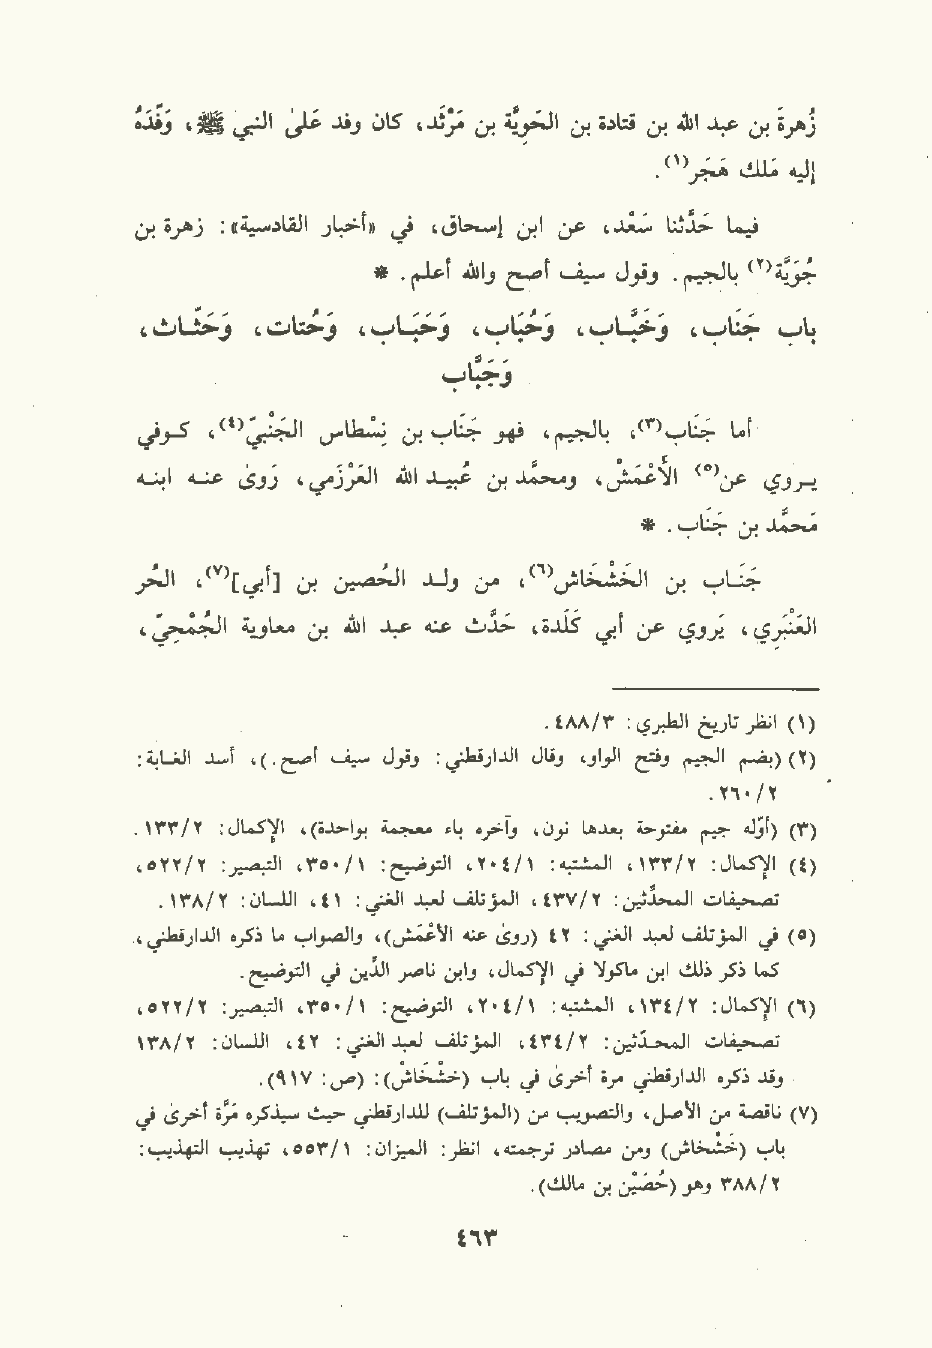 زُهرةَ بن عبد الله بن قتادة بن الحَوِيَّة بن مَرْثَد، كان وفد عَلىٰ النبي ﷺ، وَفَّدَهُ
إليه مَلك هَجَر(١).
فيما حَدَّثنا سَعْد، عن ابن إسحاق، في «أخبار القادسية»: زهرة بن
جُوَيَّة(٢) بالجيم. ويقول سيف أصح والله أعلم. *
باب جَنَاب، وَخَبَّاب، وَحُبَاب، وَحَبَاب، وَحُتات، وَحَثَّاث،
وَجَبَّاب
أما جَنَاب(٣)، بالجيم، فهو جَنَاب بن نِسْطاس الجَنْبيّ(٤)، كوفي
يروي عن(٥) الأَعْمَش، ومحمَّد بن عُبيد الله العَرْزَمي، رَوىٰ عنه ابنه
مَحمَّد بن جَنَاب. *
جَنَاب بن الخَشْخَاش(٦)، من ولد الحُصين بن [أبي](٧)، الحُر
العَنْبَرِي، يَروي عن أبي كَلَدة، حَدَّث عنه عبد الله بن معاوية الجُمَحِيّ،
(١) انظر تاريخ الطبري: ٤٨٨/٣.
(٢) (بضم الجيم وفتح الواو، وقال الدارقطني: ويقول سيف أصح.)، أسد الغابة:
٢٦٠/٢.
(٣) (أوّله جيم مفتوحة بعدها نون، وآخره باء معجمة بواحدة)، الإكمال: ١٣٣/٢.
(٤) الإكمال: ١٣٣/٢، المشتبه: ٢٠٤/١، التوضيح: ٣٥٠/١، التبصير: ٥٢٢/٢،
تصحيفات المحدّثين: ٤٣٧/٢، المؤتلف لعبد الغني: ٤١، اللسان: ١٣٨/٢.
(٥) في المؤتلف لعبد الغني: ٤٢ (روىٰ عنه الأعْمَش)، والصواب ما ذكره الدارقطني،
كما ذكر ذلك ابن ماكولا في الإكمال، وابن ناصر الدّين في التوضيح.
(٦) الإكمال: ١٣٤/٢، المشتبه: ٢٠٤/١، التوضيح: ٣٥٠/١، التبصير: ٥٢٢/٢،
تصحيفات المحدّثين: ٤٣٤/٢، المؤتلف لعبد الغني: ٤٢، اللسان: ١٣٨/٢
وقد ذكره الدارقطني مره أخرىٰ في باب (خَشْخَاش): (ص: ٩١٧).
(٧) ناقصة من الأصل، والتصويب من (المؤتلف) للدارقطني حيث سيذكره مرّة أخرىٰ في
باب (خَشْخاش) ومن مصادر ترجمته، انظر: الميزان: ٥٥٣/١، تهذيب التهذيب:
٣٨٨/٢ وهو (حُصَيْن بن مالك).
٤٦٣